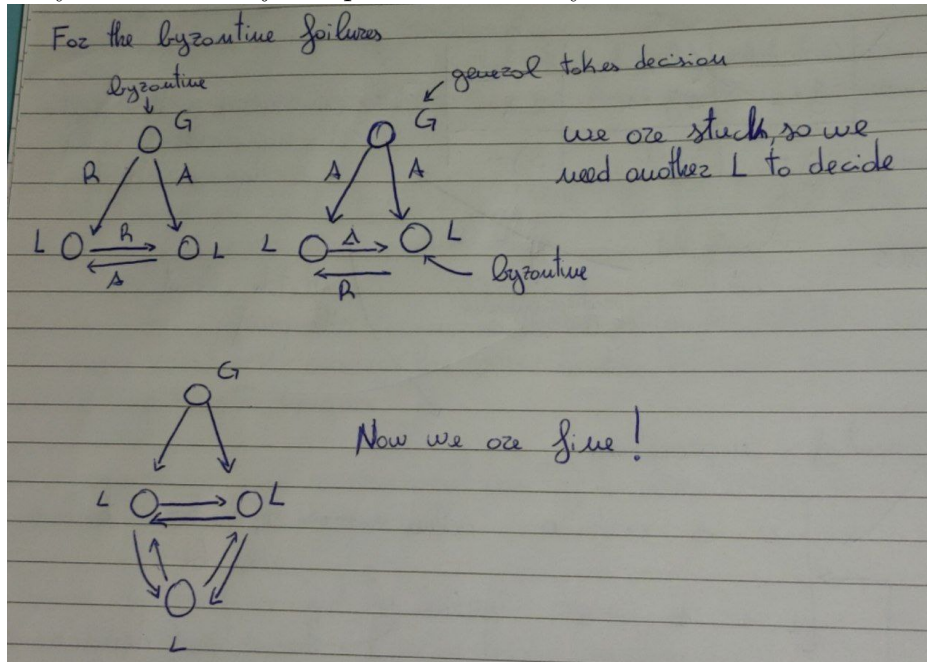 For the byzantine failures
byzantine
G
R
A
L
R
A
L
general takes decision
G
A
A
L
A
R
L
byzantine
we are stuck, so we
need another L to decide
G
L
L
L
Now we are fine!